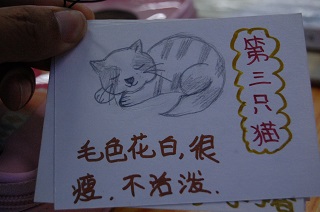 第三只猫
毛色花白,很
瘦,不活泼.